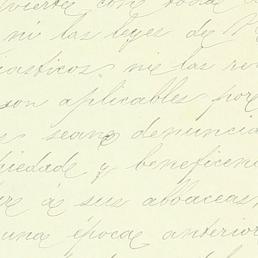 con toda
ni las leyes de
iasticos, ni las re
son aplicables por
sean denuncia
piedade y beneficen
á sus albaceas
una época anterior